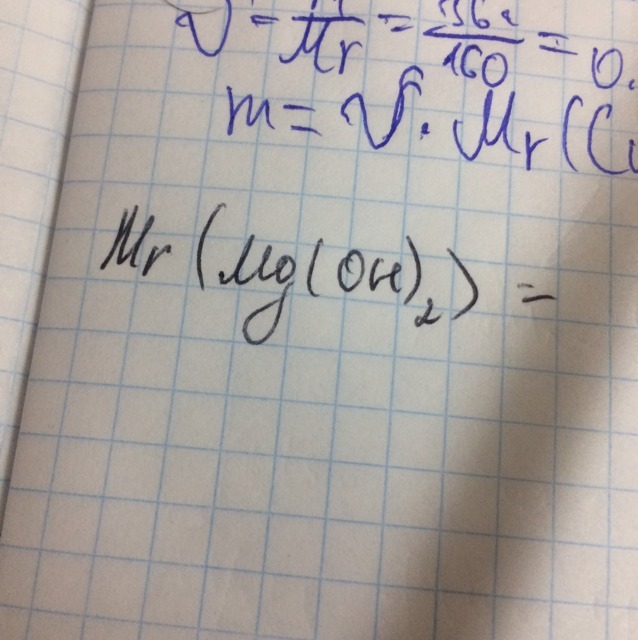 ν = m/Mr = 36г/160 = 0.
m = ν · Mr (Cu
Mr (Mg(OH)₂) =